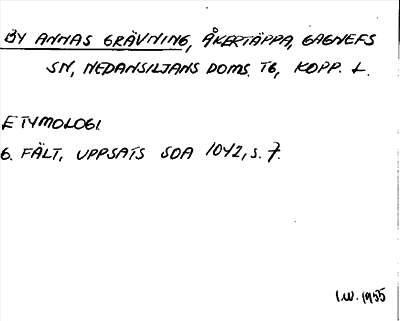 BY ANNAS GRÄVNING, ÅKERTÄPPA, GAGNEFS
SN, NEDANSILJANS DOMS. TG, KOPP. L.
ETYMOLOGI
G. FÄLT, UPPSATS SOA 1042, S. 7.
I.W. 1955